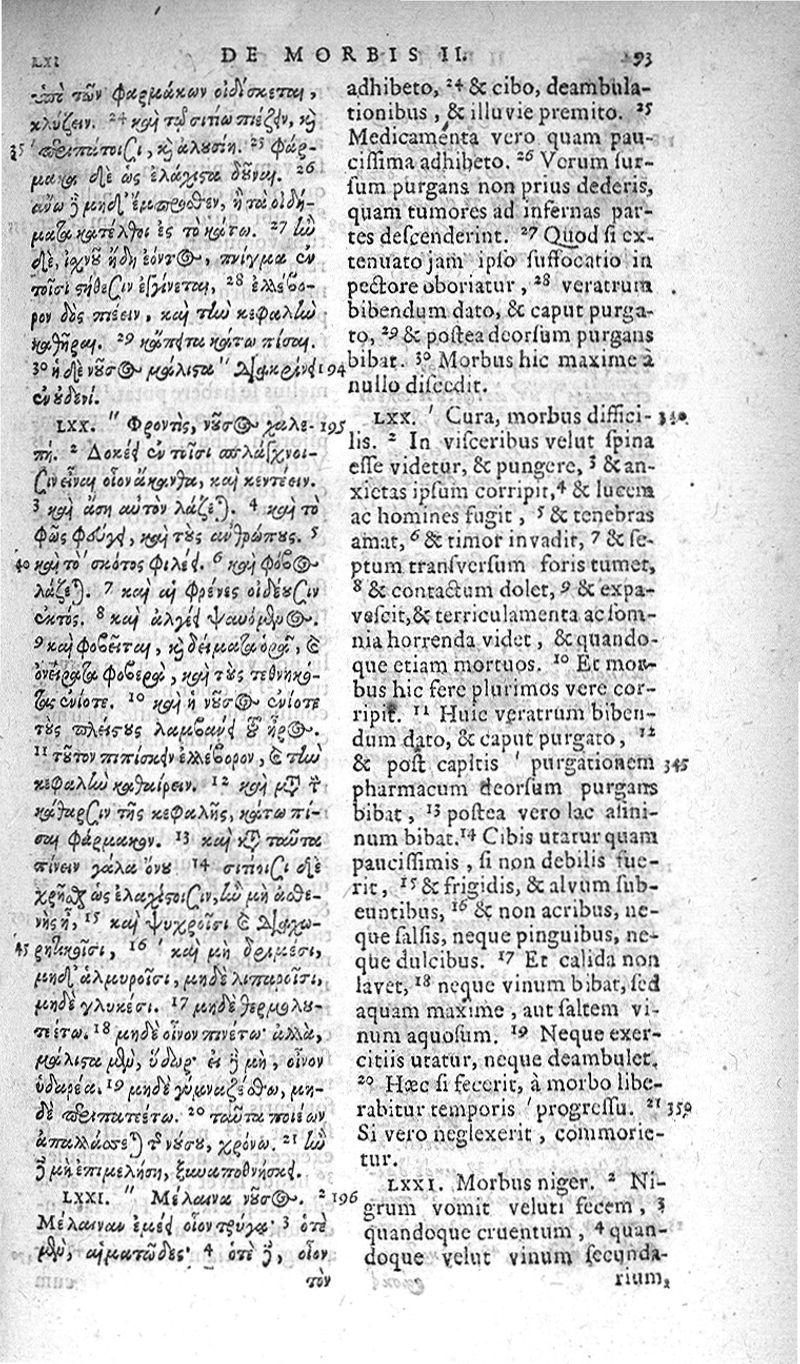 LXI DE MORBIS II. 93
ὑπὸ τῶν φαρμάκων οἰδίσκεται,
κλύζειν. 24 καὶ τῷ σιτίῳ πιέζειν, καὶ
35 ' περιπάτοισι, καὶ ἀλουσίη. 25 φάρ-
μακα δὲ ὡς ἐλάχιστα δοῦναι. 26
ἄνω δὲ μηδ' ἔμπροσθεν, ἢ τὰ οἰδή-
ματα κατέλθοι ἐς τὸ κάτω. 27 ἢν
δὲ, ἰχνοῦ ἤδη ἐόντος, πνίγμα ἐν
τοῖσι στήθεσιν ἐγγίνεται, 28 ἐλλέβο-
ρον δὸς πιέειν, καὶ τὴν κεφαλὴν
καθῆραι. 29 κἄπειτα κάτω πῖσαι.
30 ἡ δὲ νοῦσος μάλιστα " διακρίνει 194
ἐν οὐδενί.
LXX. " Φροντὶς, νοῦσος χαλε- 195
πή. 2 Δοκέει ἐν τοῖσι σπλάγχνοι-
σιν εἶναι οἷον ἄκανθα, καὶ κεντέειν.
3 καὶ ἄση αὐτὸν λάζεται. 4 καὶ τὸ
φῶς φεύγει, καὶ τοὺς ἀνθρώπους. 5
40 καὶ τὸ ' σκότος φιλέει. 6 καὶ φόβος
λάζεται. 7 καὶ αἱ φρένες οἰδέουσιν
ἐκτός. 8 καὶ ἀλγέει ψαυόμενος.
9 καὶ φοβεῖται, καὶ δείματα ὁρᾷ, καὶ
ὀνείρατα φοβερὰ, καὶ τοὺς τεθνηκό-
τας ἐνίοτε. 10 καὶ ἡ νοῦσος ἐνίοτε
τοὺς πλείστους λαμβάνει τοῦ ἦρος.
11 τοῦτον πιπίσκειν ἐλλέβορον, καὶ τὴν
κεφαλὴν καθαίρειν. 12 καὶ μετὰ τὴν
κάθαρσιν τῆς κεφαλῆς, κάτω πί-
σαι φάρμακον. 13 καὶ μετὰ ταῦτα
πίνειν γάλα ὄνου 14 σιτίοισι δὲ
χρῆσθαι ὡς ἐλαχίστοισιν, ἢν μὴ ἀσθε-
νὴς ᾖ, 15 καὶ ψυχροῖσι καὶ διαχω-
45 ρητικοῖσι, 16 ' καὶ μὴ δριμέσι,
μηδ' ἁλμυροῖσι, μηδὲ λιπαροῖσι,
μηδὲ γλυκέσι. 17 μηδὲ θερμολου-
τέτω. 18 μηδὲ οἶνον πινέτω· ἀλλὰ,
μάλιστα μὲν, ὕδωρ· εἰ δὲ μὴ, οἶνον
ὑδαρέα. 19 μηδὲ γυμναζέσθω, μη-
δὲ περιπατεέτω. 20 ταῦτα ποιέων
ἀπαλλάσσεται τῆς νούσου, χρόνῳ. 21 ἢν
δὲ μὴ ἐπιμελήσῃ, ξυναποθνήσκει.
LXXI. " Μέλαινα νοῦσος. 2 196
Μέλαιναν ἐμέει οἷον τρύγα· 3 ὁτὲ
μὲν, αἱματῶδες· 4 ὁτὲ δὲ, οἷον
τὸν
adhibeto, 24 & cibo, deambula-
tionibus, & illuvie premito. 25
Medicamenta vero quam pau-
cissima adhibeto. 26 Verum sur-
sum purgans non prius dederis,
quam tumores ad infernas par-
tes descenderint. 27 Quod si ex-
tenuato jam ipso suffocatio in
pectore oboriatur, 28 veratrum
bibendum dato, & caput purga-
to, 29 & postea deorsum purgans
bibat. 30 Morbus hic maxime à
nullo discedit.
LXX. ' Cura, morbus diffici- 340
lis. 2 In visceribus velut spina
esse videtur, & pungere, 3 & an-
xietas ipsum corripit, 4 & lucem
ac homines fugit, 5 & tenebras
amat, 6 & timor invadit, 7 & se-
ptum transversum foris tumet,
8 & contactum dolet, 9 & expa-
vescit, & terriculamenta ac som-
nia horrenda videt, & quando-
que etiam mortuos. 10 Et mor-
bus hic fere plurimos vere cor-
ripit. 11 Huic veratrum biben-
dum dato, & caput purgato, 12
& post capitis ' purgationem 345
pharmacum deorsum purgans
bibat, 13 postea vero lac asini-
num bibat. 14 Cibis utatur quam
paucissimis, si non debilis fue-
rit, 15 & frigidis, & alvum sub-
euntibus, 16 & non acribus, ne-
que salsis, neque pinguibus, ne-
que dulcibus. 17 Et calida non
lavet, 18 neque vinum bibat, sed
aquam maxime, aut saltem vi-
num aquosum. 19 Neque exer-
citiis utatur, neque deambulet.
20 Hæc si fecerit, à morbo libe-
rabitur temporis ' progressu. 21 350
Si vero neglexerit, commorie-
tur.
LXXI. Morbus niger. 2 Ni-
grum vomit veluti fecem, 3
quandoque cruentum, 4 quan-
doque velut vinum secunda-
rium,